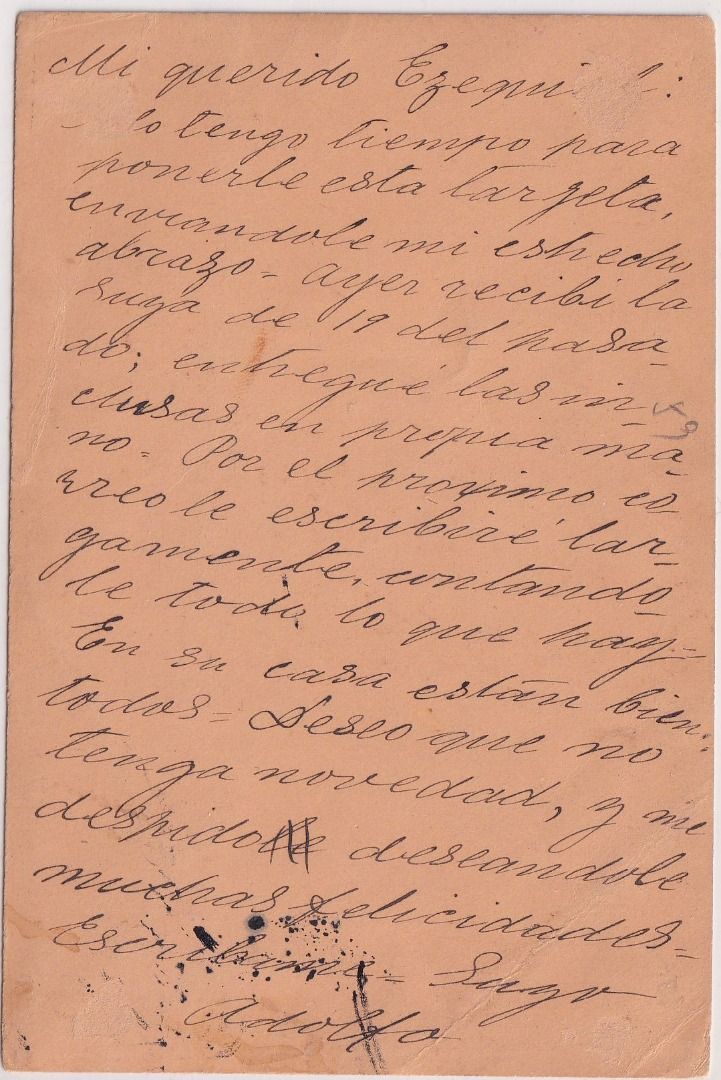 Mi querido Ezequi l:
lo tengo tiempo para
ponerle esta targeta,
enviandole mi estrecho
abrazo - ayer recibi la
suya de 19 del pasa-
do; entregué las in-
clusas en propia ma-
no - Por el proximo co
rreo le escribiré lar-
gamente, contando-
le todo lo que hay -
En su casa están bien
todos - Deseo que no
tenga novedad, y me
despido deseandole
muchas felicidades -
Escribame - Suyo
Adolfo